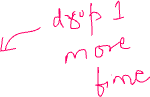 drop 1
more
time